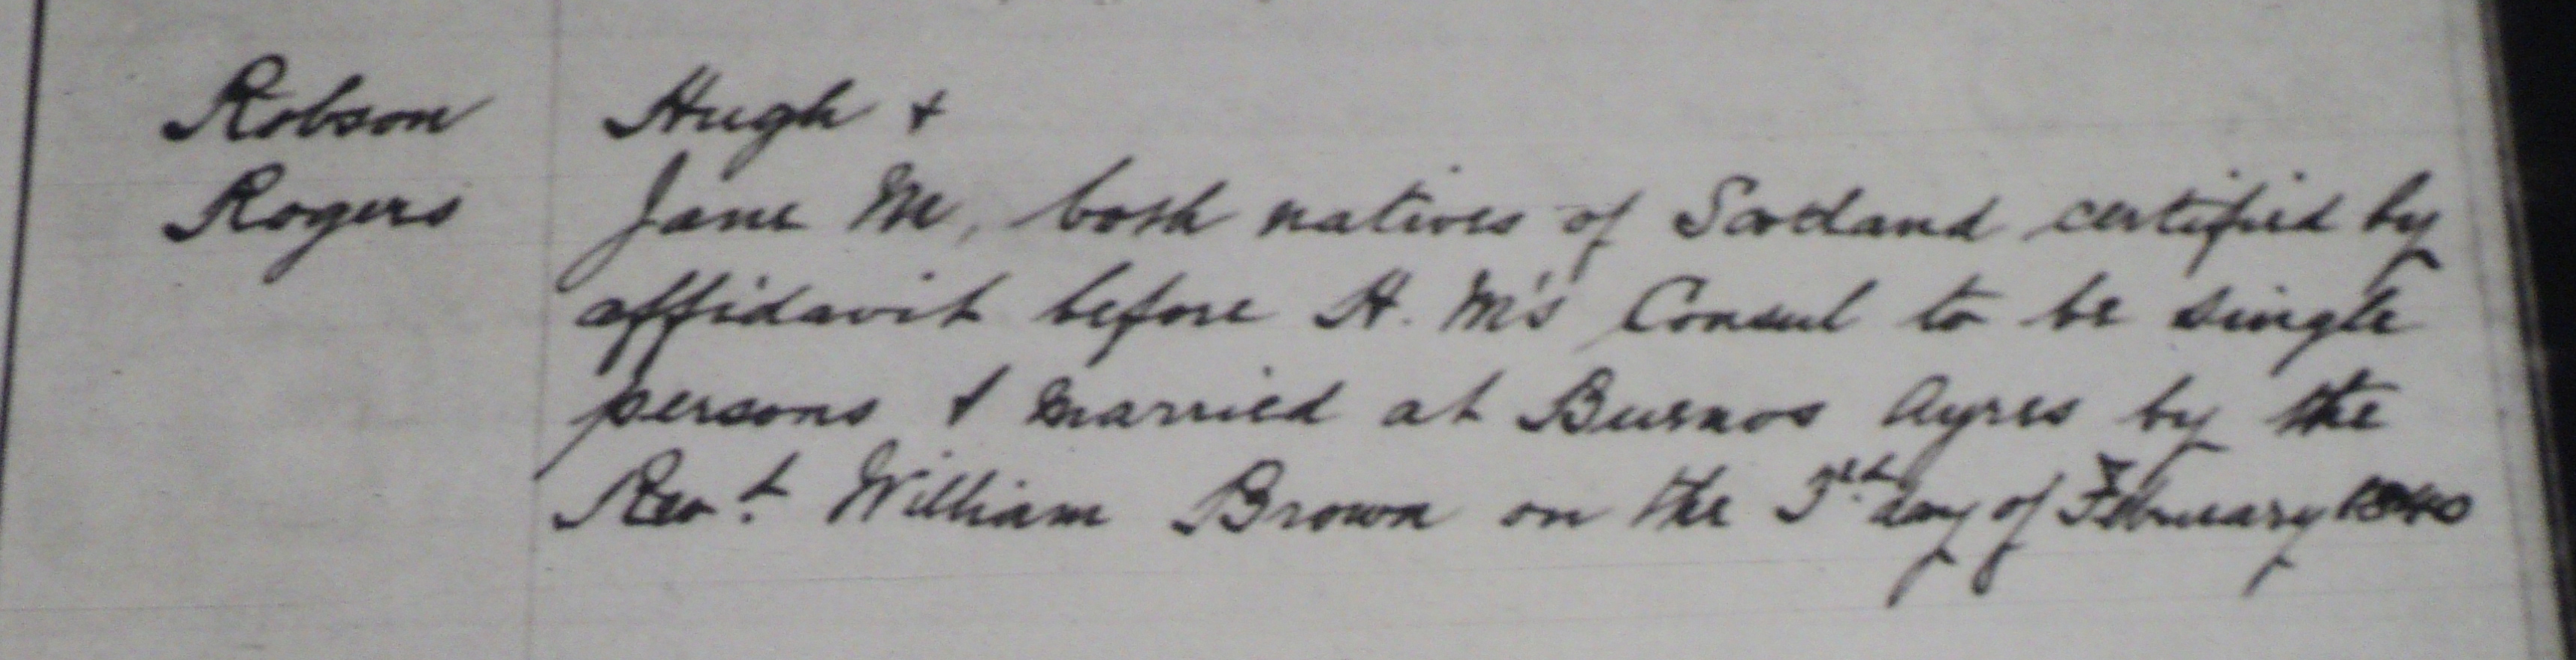 Robson Hugh +
Rogers Jane Mc, both natives of Scotland certified by
affidavit before H. M's Consul to be single
persons & married at Buenos Ayres by the
Revt. William Brown on the day of February 1840